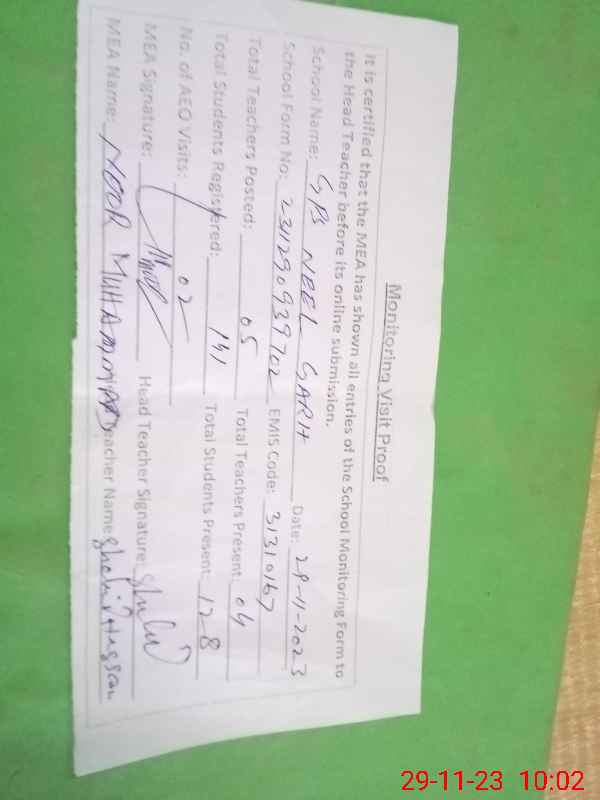 Monitoring Visit Proof
It is certified that the MEA has shown all entries of the School Monitoring Form to
the Head Teacher before its online submission.
School Name: GPS NEEL GARH Date: 29-11-2023
School Form No: 2311290939702 EMIS Code: 31310167
Total Teachers Posted: 05 Total Teachers Present: 04
Total Students Registered: 141 Total Students Present: 128
No. of AEO Visits: 02
MEA Signature: Head Teacher Signature:
MEA Name: NOOR MUHAMMAD Teacher Name: Shahid Hassan
29-11-23 10:02